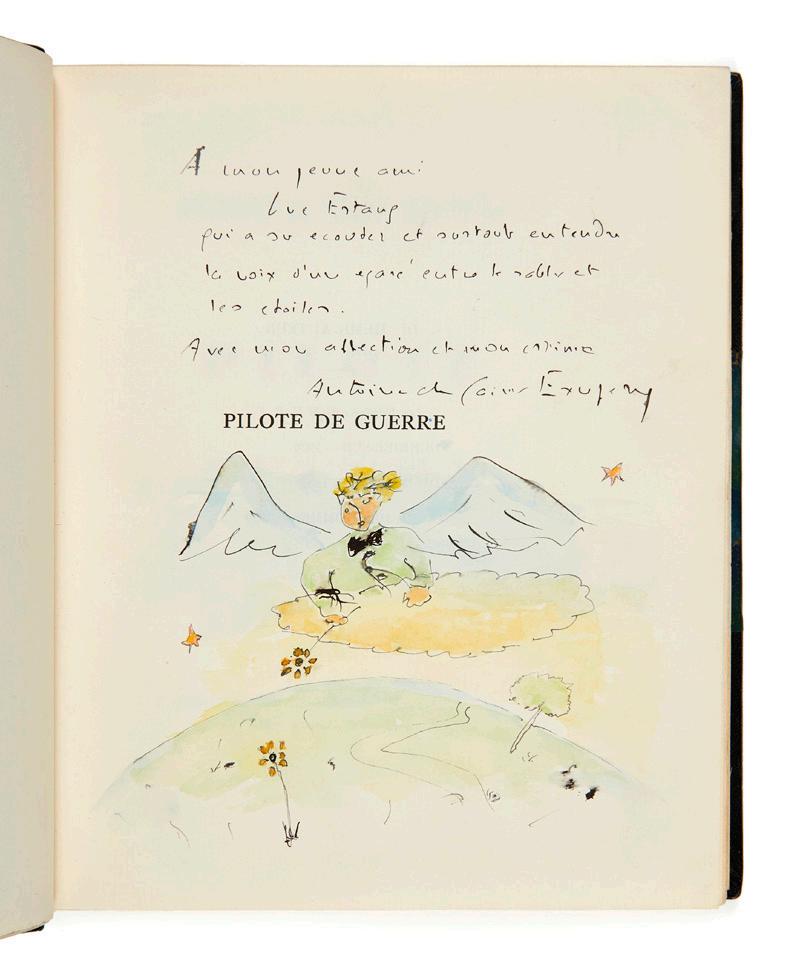 A mon jeune ami
Luc Estang
qui a su ecouter et surtout entendre
la voix d'un egaré entre le sable et
les etoiles.
Avec mon affection et mon estime
Antoine de Saint Exupery
PILOTE DE GUERRE